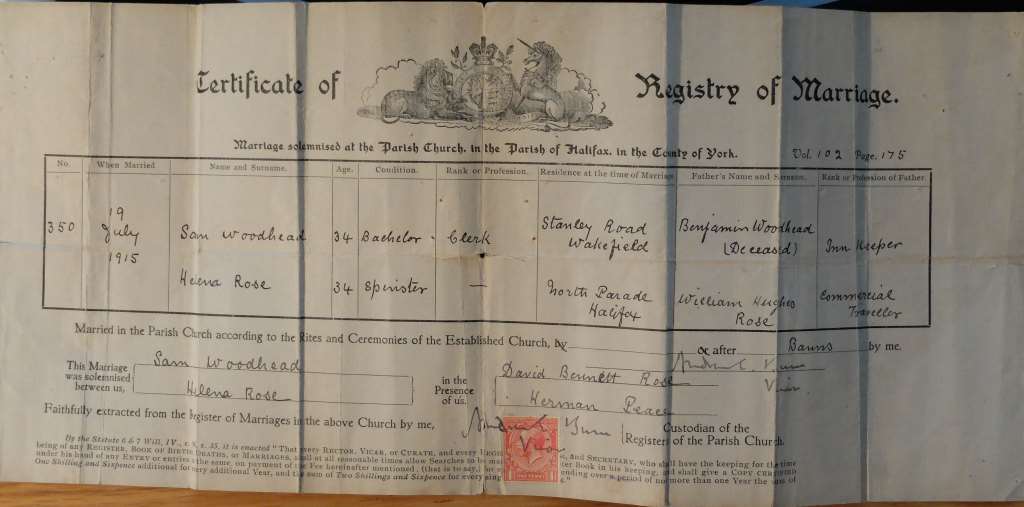 Certificate of Registry of Marriage.
Marriage solemnised at the Parish Church, in the Parish of Halifax, in the County of York. Vol. 102 Page. 175
No. When Married Name and Surname. Age. Condition. Rank or Profession. Residence at the time of Marriage Father's Name and Surname. Rank or Profession of Father.
350 19 July 1915 Sam Woodhead 34 Bachelor Clerk Stanley Road Wakefield Benjamin Woodhead (Deceased) Inn Keeper
Helena Rose 34 Spinster — North Parade Halifax William Hughes Rose Commercial Traveller
Married in the Parish Church according to the Rites and Ceremonies of the Established Church, by or after Banns by me.
This Marriage was solemnised between us, Sam Woodhead
Helena Rose
in the Presence of us. David Bennett Rose
Herman Peace
Vicar
Faithfully extracted from the Register of Marriages in the above Church by me, Vicar Custodian of the Registers of the Parish Church.
By the Statute 6 & 7 Will, IV., c. 35, it is enacted "That every RECTOR, VICAR, or CURATE, and every and SECRETARY, who shall have the keeping for the time
being of any REGISTER, BOOK OF BIRTHS DEATHS, or MARRIAGES, shall at all reasonable times allow Searches to be Book in his keeping, and shall give a COPY CERTIFIED
under his hand of any ENTRY or the same, on payment of the Fee hereinafter mentioned, (that is to say,) over a period of no more than one Year the sum of
One Shilling and Sixpence additional for every additional Year, and the sum of Two Shillings and Sixpence for every